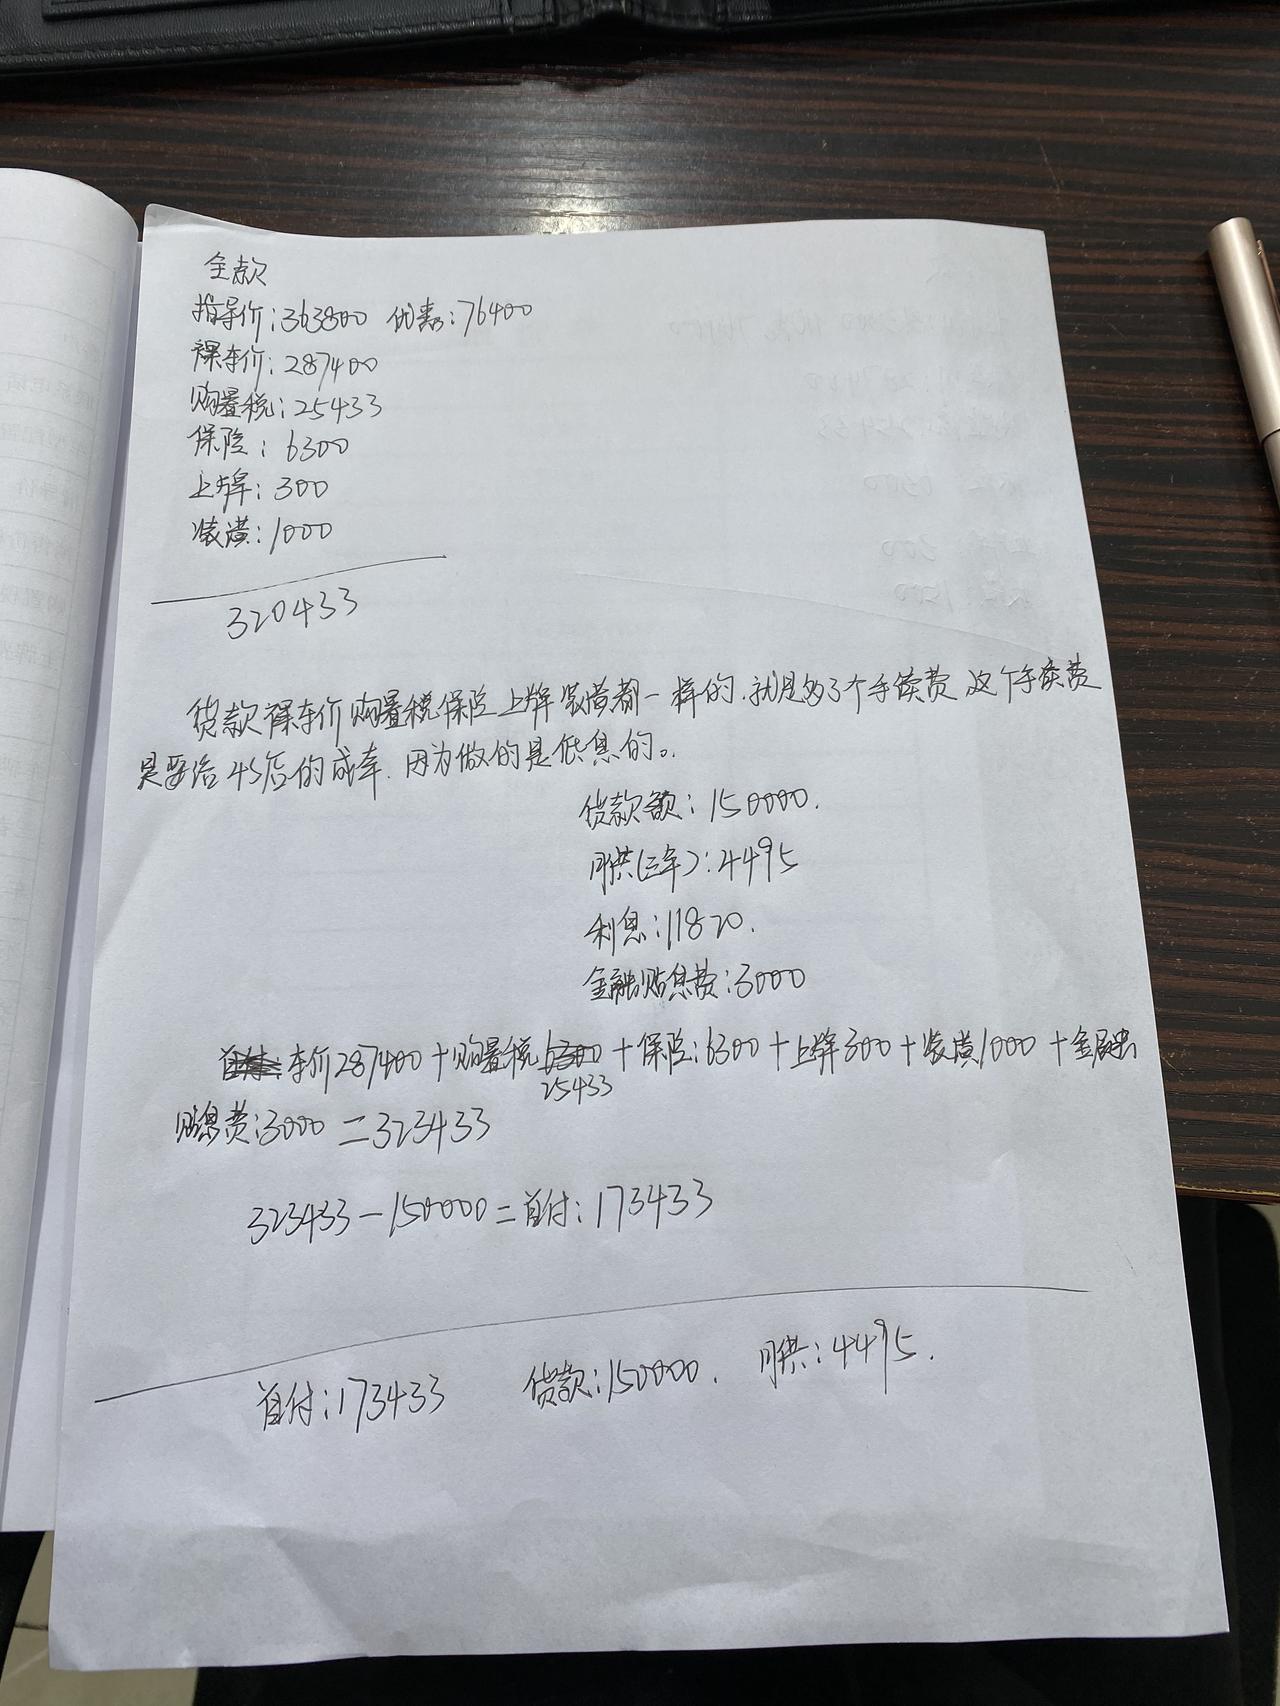 全款
指导价:363800 优惠:76400
裸车价:287400
购置税:25433
保险:6300
上牌:300
装潢:1000
320433
贷款 裸车价 购置税 保险 上牌 装潢都一样的.就是多了个手续费 这个手续费
是要给4S店的成本.因为做的是低息的。
贷款额:150000.
月供(三年):4495
利息:11820.
金融贴息费:3000
车价287400+购置税25433+保险:6300+上牌300+装潢1000+金融
贴息费:3000=323433
323433-150000=首付:173433
首付:173433 贷款:150000. 月供:4495.